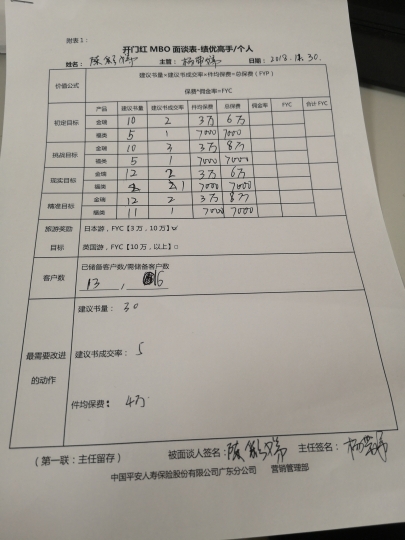 附表1：
开门红 MBO 面谈表-绩优高手/个人
姓名： 主管： 日期：2018. 30.
价值公式 建议书量*建议书成交率*件均保费=总保费（FYP）
保费*佣金率=FYC
产品 建议书量 建议书成交率 件均保费 总保费 佣金率 FYC 合计 FYC
初定目标 金瑞 10 2 3万 6万
福类 5 1 7000 7000
挑战目标 金瑞 10 3 3万 8万
福类 5 1 7000 7000
现实目标 金瑞 12 2 3万 6万
福类 1 7000 7000
精准目标 金瑞 12 2 3万 8万
福类 11 1 7000 7000
旅游奖励 日本游，FYC【3 万，10 万】
目标 英国游，FYC【10 万，以上】□
客户数 已储备客户数/需储备客户数
13 , 16
建议书量：30
最需要改进 建议书成交率：5
的动作
件均保费：4万
（第一联：主任留存） 被面谈人签名： 主任签名：
中国平安人寿保险股份有限公司广东分公司 营销管理部